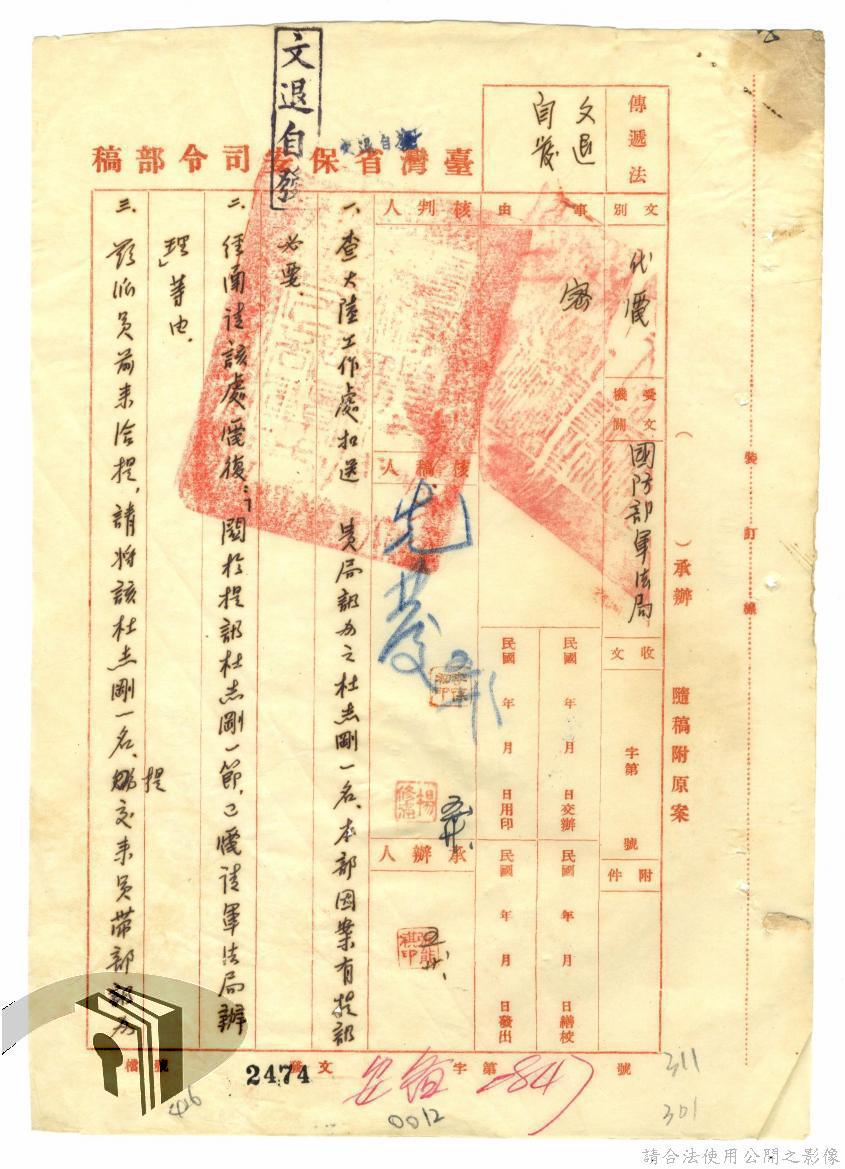 裝訂線
（　　）承辦　隨稿附原案
傳遞法
文退
自發
文退自發
文退自發
臺灣省保安司令部稿
文別
代電
受文機關
國防部軍法局
收文
字第
號
附件
事由
密
民國 年 月 日交辦
民國 年 月 日繕校
民國 年 月 日用印
民國 年 月 日發出
核判人
核稿人
承辦人
一、查大陸工作處扣送 貴局訊辦之杜志剛一名，本部因案有提訊
必要。
二、經函請該處電復：「關於提訊杜志剛一節，已電請軍法局辦
理」等由。
三、玆派員前來洽提，請將該杜志剛一名，提交來員帶部訊辦
檔號
2474
發文
字第
847
號
0012
311
301
426
請合法使用公開之影像